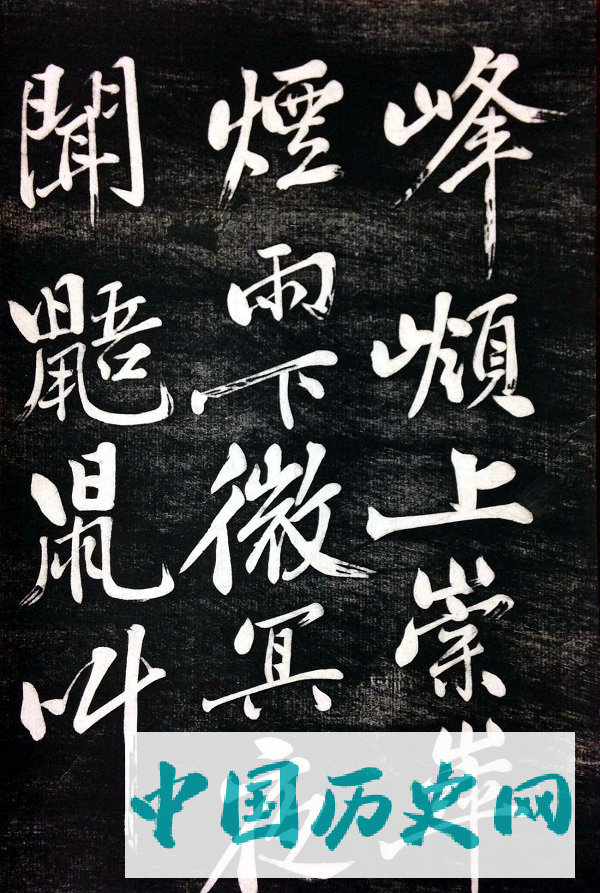 峰上崇崒
煙雨下微冥夜
聞鼯鼠叫
中国历史网